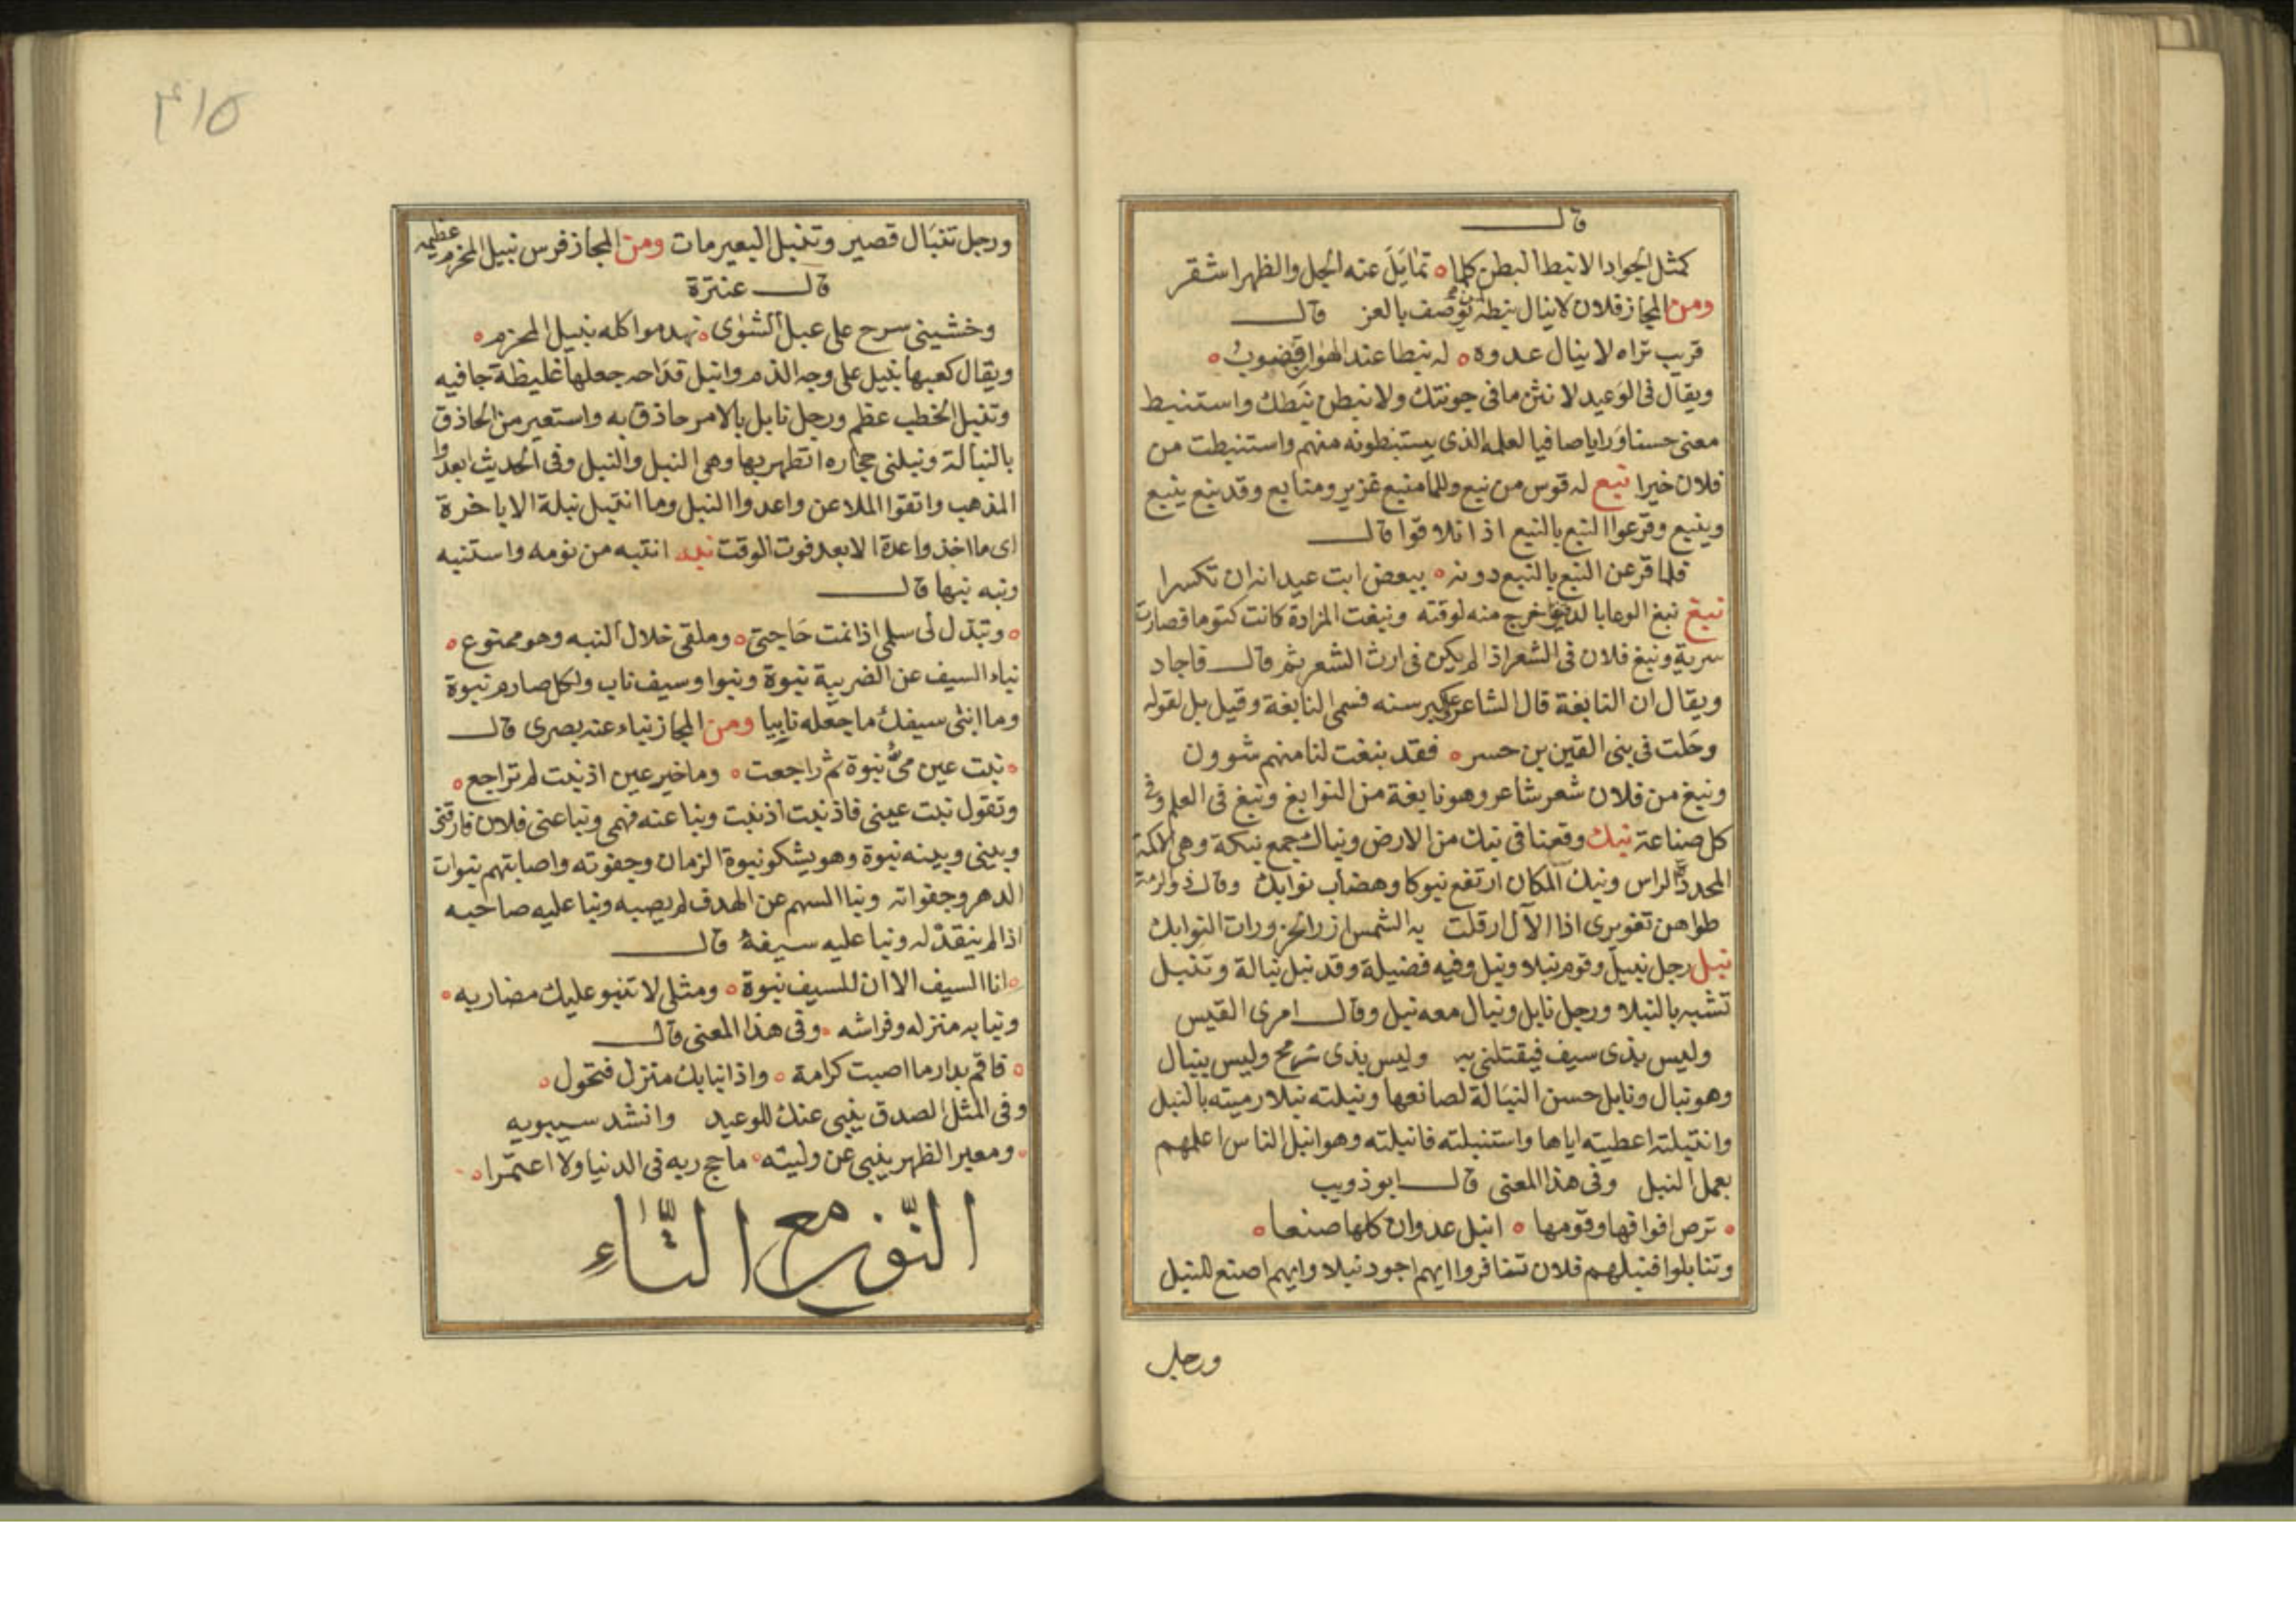 قال
كمثل الجواد الانبط البطن كلما ه تمايَلَ عنه الجل والظهر اشقر
ومن المجاز فلان لا ينال نبطه يوصف بالعز قال
قريب تراه لا ينال عدوه ه له نبطا عند الهوان قضوب ه
ويقال فى الوَعيد لا نثن ما فى جونتك ولا نبطن نبَطك واستنبط
معنى حسنا ورايا صافيا لعلمه الذى يستنبطونه منهم واستنبطت من
فلان خيرا نبع له قوس من نبع وللما منبع غزير ومنابع وقد نبع ينبع
وينبع وقرعوا النبع بالنبع اذا تلاقوا قال
فلما قرعن النبع بالنبع دونه ه ببعض ابت عيدانه ان تكسرا
نبغ نبغ الوعا بالدقيق خرج منه لوقته ونبغت المزادة كانت كتوما فصارت
سربة ونبغ فلان فى الشعر اذا لم يكن فى ارث الشعر ثم قال فاجاد
ويقال ان النابغة قال الشاعر على كبر سنه فسمى النابغة وقيل بل لقوله
وحَلت فى بنى القين بن حسر ه فقد نبغت لنا منهم شوون
ونبغ من فلان شعر شاعر وهو نابغة من النوابغ ونبغ فى العلم وفى
كل صناعة نبك وقعنا فى نبك من الارض ونباك جمع نبكة وهى الاكمة
المحددة الراس ونبك المكان ارتفع نبوكا وهضاب نوابك وقال ذو الرمة
طواهن تغويرى اذا الآل ارقلت به الشمس ازر الحزورات النوابك
نبل رجل نبيل وقوم نبلا ونبل وفيه فضيلة وقد نبل نبالة وتنبل
تشبه بالنبلا ورجل نابل ونبال معه نبل وقال امرى القيس
وليس بذى سيف فيقتلنى به وليس بذى رمح وليس بنبال
وهو نبال ونابل حسن النبَالة لصانعها ونبلته نبلا رميته بالنبل
وانتبلته اعطيته اياها واستنبلته فانبلته وهو انبل الناس اعلمهم
بعمل النبل وفى هذا المعنى قال ابو ذويب
ه ترص افواقها وقومها ه انبل عدوان كلها صنعا ه
وتنابلوا فنبلهم فلان تنافروا ايهم اجود نبلا وايهم اصنع للنبل
ورجل
٣١٥
ورجل تنبَال قصير وتنبل البعير مات ومن المجاز فرس نبيل المحزم عظيمه
قال عنترة
وخشيتى سرح على عبل الشوى ه نهد مواكله نبيل المحزم ه
ويقال كعبها نبيل على وجه الذم وانبل قدَاحه جعلها غليظة جافيه
وتنبل الخطب عظم ورجل نابل بالامر حاذق به واستعير من الحاذق
بالنبالة ونبلنى حجاره اتطهر بها وهى النبل والنبل وفى الحديث ابعدوا
المذهب واتقوا الملاعن واعدوا النبل وما انتبل نبلة الا باخرة
اى ما اخذ واعدة الا بعد فوت الوقت نبه انتبه من نومه واستنبه
ونبه نبها قال
ه وتبذل لى سلمى اذا نمت حَاجتى ه وملقى خلال النبه وهو ممنوع ه
نباء السيف عن الضريبة نبوة ونبوا وسيف ناب ولكل صارم نبوة
وما انثى سيفك ما جعله نابيا ومن المجاز نباء عنه بصرى قال
ه نبت عين مىّ نبوة ثم راجعت ه وما خير عين اذ نبت لم تراجع ه
وتقول نبت عينى فاذ نبت اذ نبت ونبا عنه فهمى ونبا عنى فلان فارقنى
وبينى وبينه نبوة وهو يشكو نبوة الزمان وجفوته واصابتهم نبوات
الدهر وجفواته ونبا السهم عن الهدف لم يصبه ونبا عليه صاحبه
اذا لم ينقد له ونبا عليه سيفه قال
ه انا السيف الا ان للسيف نبوة ه ومثلى لا تنبو عليك مضاربه ه
ونبا به منزله وفراشه ه وفى هذا المعنى قال
ه فاقم بدار ما اصبت كرامة ه واذا نبا بك منزل فتحول ه
وفى المثل الصدق ينبى عنك للوعيد وانشد سيبويه
ه ومعبر الظهر ينبى عن وليته ه ما حج ربه فى الدنيا ولا اعتمرا ه
النّون مع التّاءِ